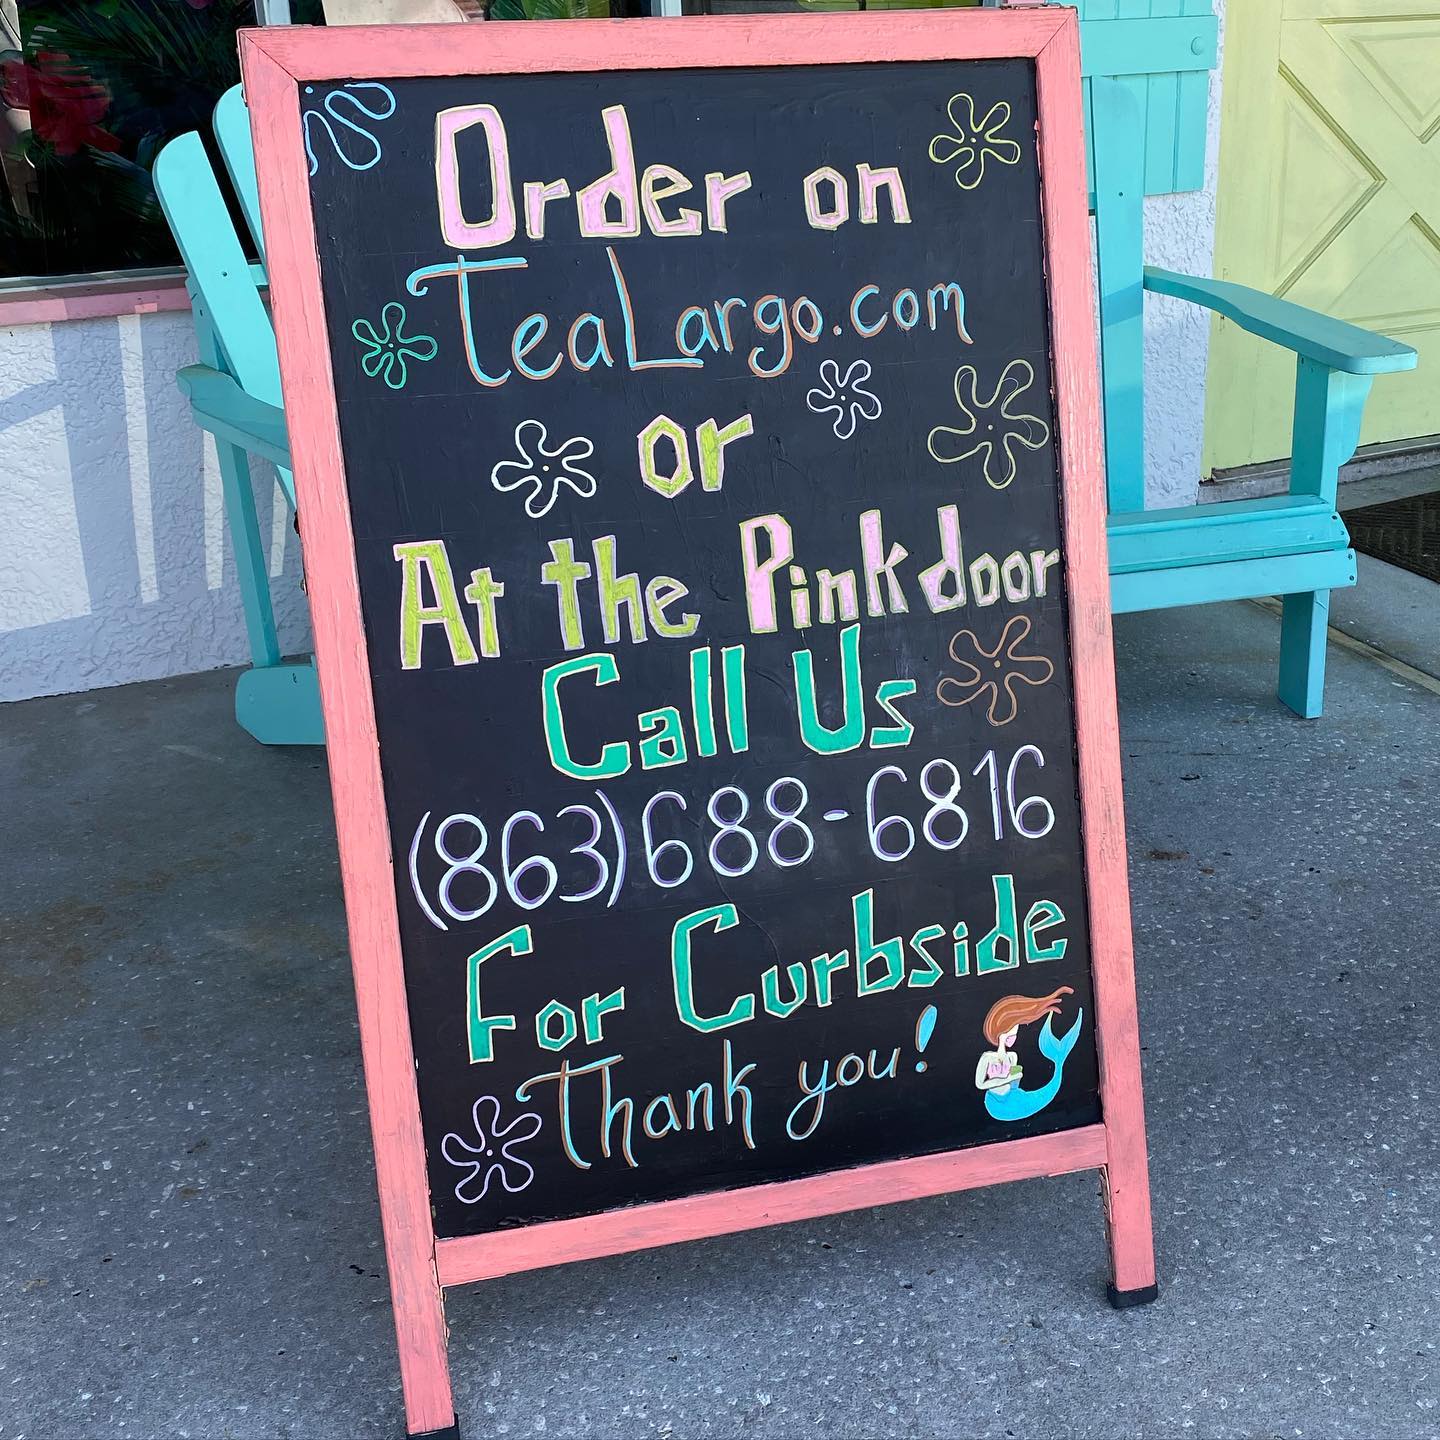 Order on
TeaLargo.com
or
At the Pink door
Call Us
(863) 688-6816
For Curbside
Thank you!